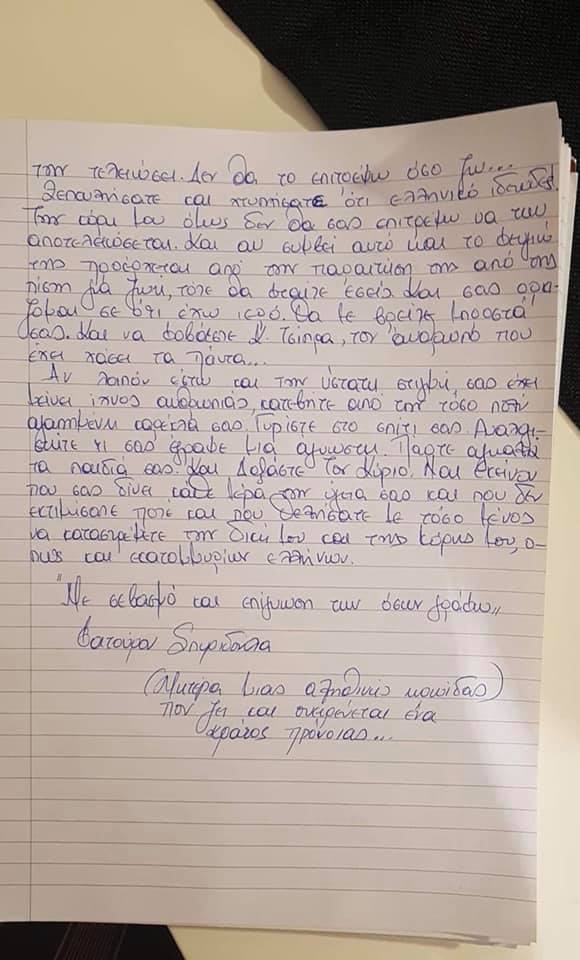 την τελειώσει. Δεν θα το επιτρέψω όσο ζω...
Ξεπουλήσατε και χτυπήσατε ότι ελληνικό ιδεώδες.
Την κόρη μου όμως δεν θα σας επιτρέψω να την
αποτελειώσεται. Και αν συμβεί αυτό και το
της προέρχεται από την παραίτηση της από την
για ζωή, τότε θα εσείς. Και σας
σε ότι έχω ιερό. Θα με βρείτε μπροστά
σας. Και να φοβάστε κ. Τσίπρα, τον άνθρωπο που
έχει χάσει τα πάντα...
Αν λοιπόν έστω και την ύστατη στιγμή, σας έχει
μείνει ίχνος ανθρωπιάς, κατεβήτε από την τόσο πολύ
αγαπημένη καρέκλα σας. Γυρίστε στο σπίτι σας.
τι σας έγραψε μια άγνωστη. Πάρτε αγκαλιά
τα παιδιά σας. Και Δοξάστε Τον Κύριο. Ναι Εκείνον
που σας δίνει κάθε μέρα την υγεία σας και που δεν
εκτιμήσατε ποτέ και που θελήσατε με τόσο μένος
να καταστρέψετε την δική μου και της κόρης μου, ό-
πως και εκατομμυρίων ελλήνων.
"Με σεβασμό και επίγνωση των όσων γράφω,,
Σπυριδούλα
(Μητέρα μιας αληθινής κοπίδας)
που ζη και ονειρεύεται ένα
κράτος πρόνοιας...